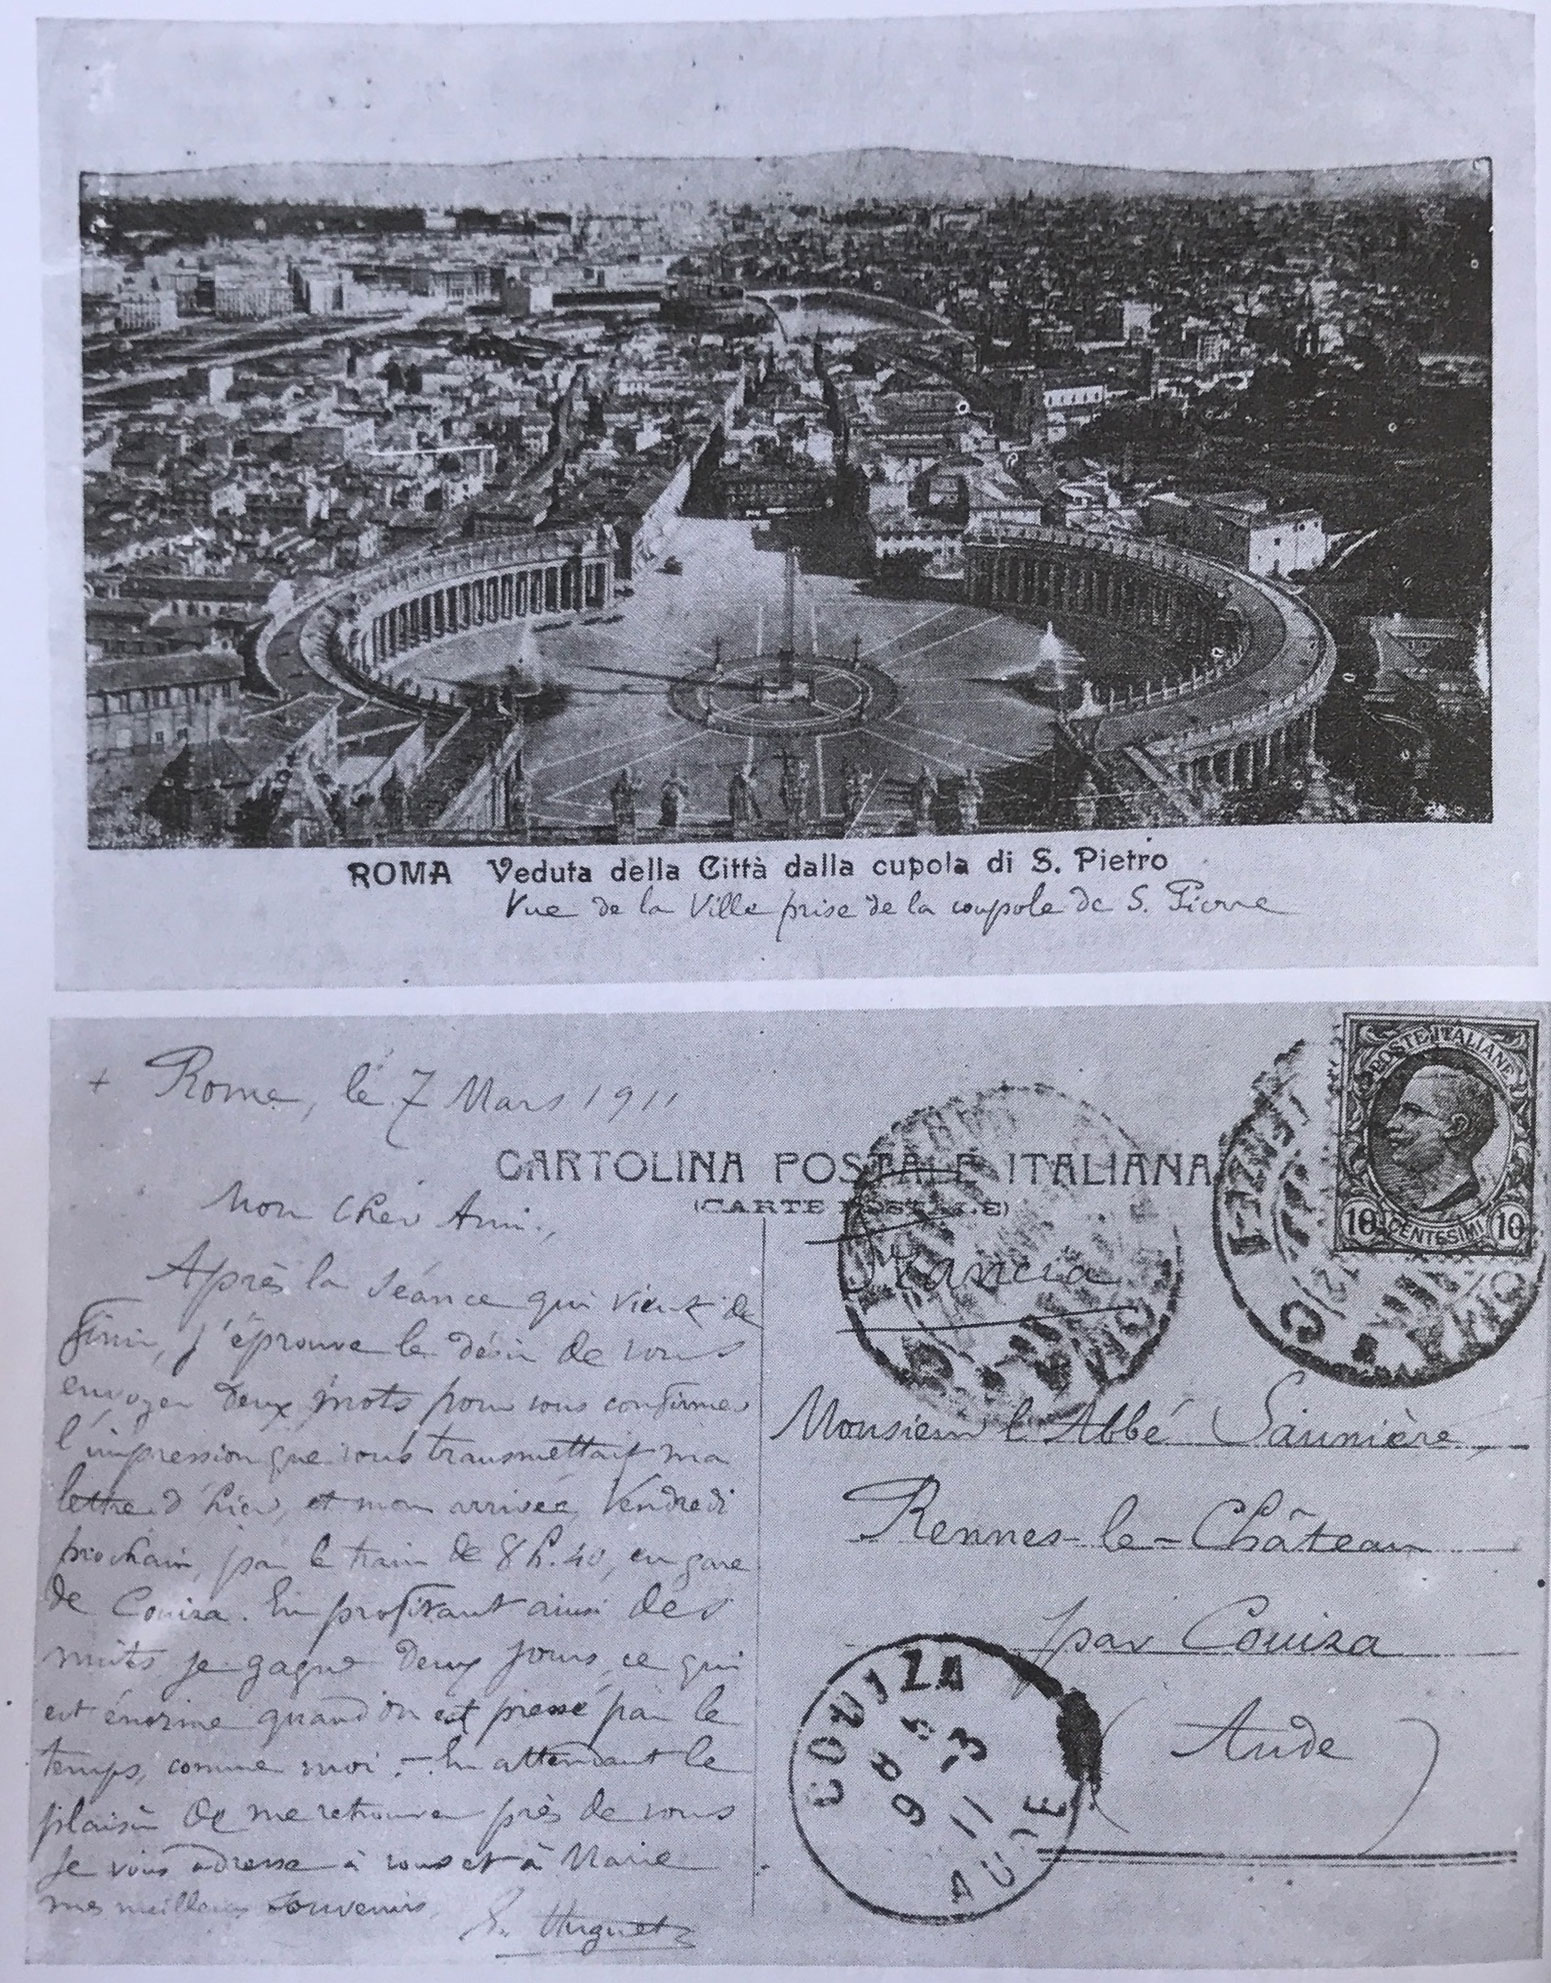 ROMA Veduta della Città dalla cupola di S. Pietro
Vue de la Ville prise de la coupole de S. Pierre
+ Rome, le 7 Mars 1911
CARTOLINA POSTALE ITALIANA
(CARTE POSTALE)
Mon Cher Ami,
Après la séance qui vient de
finir, j'éprouve le désir de vous
envoyer deux mots pour vous confirmer
l'impression que vous transmettait ma
lettre d'hier, et mon arrivée, Vendredi
prochain, par le train de 8h.40, en gare
de Couiza. En profitant ainsi des
nuits je gagne deux jours, ce qui
est énorme quand on est pressé par le
temps, comme moi. - En attendant le
plaisir de me retrouver près de vous
je vous adresse à vous et à Marie
mes meilleurs souvenirs.
Huguet
POSTE ITALIANE
10 CENTESIMI 10
Francia
Monsieur l'Abbé Saunière,
Rennes-le-Château
par Couiza
(Aude)
COUIZA
9 -3
11
AUDE